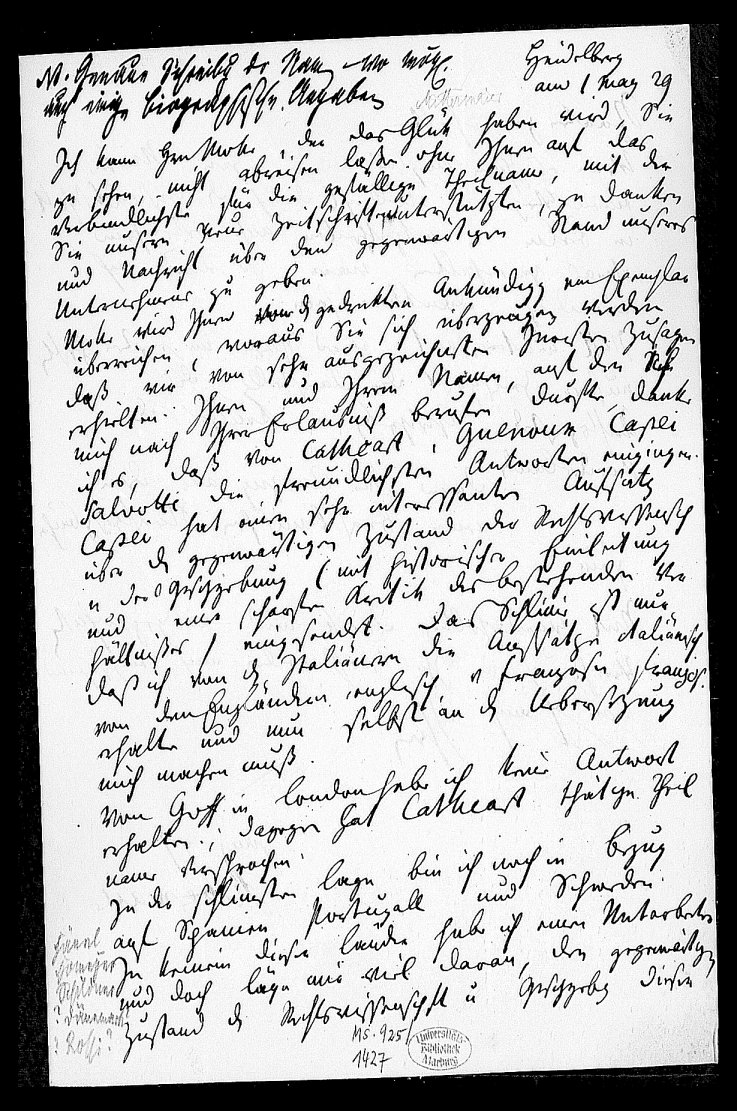 N. Genaue Schreibung der Namen wo mögl.
auch einige biographische Angaben
Heidelberg
am 1 May 29
Mittermaier
Ich kann Hrn Mohr, der das Glük haben wird Sie
zu sehen, nicht abreisen laßen ohne Ihnen auf das
Verbindlichste für die gefällige Theilname, mit der
Sie unsere neue Zeitschrift unterstützten, zu danken
und Nachricht über den gegenwärtigen Stand unseres
Unternehmens zu geben.
Mohr wird Ihnen von der gedrukten Ankündigg ein Exemplar
überreichen, woraus Sie sich überzeugen werden
daß wir von sehr ausgezeichneten Juristen Zusagen
erhielten. Ihnen und Ihrem Namen, auf den ich
mich nach Ihrer Erlaubniß berufen durfte, danke
ich es, daß von Cathcart, Guenoux Capei
Salvotti die freundlichsten Antworten eingingen.
Capei hat einen sehr interessanten Aufsatz
über den gegenwärtigen Zustand der Rechtswissensch
u der Gesetzgebung (mit historischer Einleitung
und einer scharfen Kritik des bestehenden Ver
hältnißes) eingesendet. Das Schlimme ist nur
daß ich von den Italiänern die Aufsätze italiänisch
von den Engländern englisch, v Franzosen französ.
erhalte und nun selbst an die Uebersetzung
mich machen muß.
Von Goff in London habe ich keine Antwort
erhalten; dagegen hat Cathcart thätige Theil
name versprochen.
In der schlimsten Lage bin ich noch in Bezug
auf Spanien Portugall und Schweden.
In keinem dieser Länder habe ich einen Mitarbeiter
und doch läge mir viel daran, den gegenwärtigen
Zustand der Rechtswissenschaft u Gesetzgebg dieser
Hänel
Homeyer
Schildener
? Dänemark
? Rossi ?
MS. 925/
1427
Universitäts
Bibliothek
Marburg